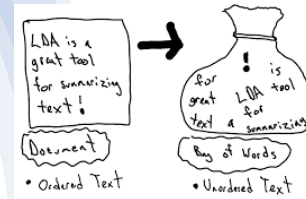 LDA is a
great tool
for summarizing
text!
Document
• Ordered Text
for ! is
great LDA tool
for
text a summarizing
Bag of Words
• Unordered Text